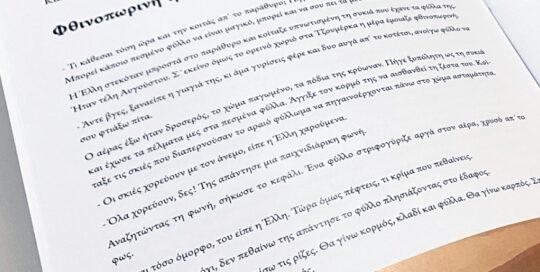 Φθινοπωρινή
- Τι κάθεσαι τόση ώρα και την κοιτάς απ' το παράθυρο;
Μπορεί κάποιο πεσμένο φύλλο να είναι μαγικό, μπορεί και να σου πει τα
Η Έλλη στεκόταν μπροστά στο παράθυρο και κοίταζε υπνωτισμένη τη συκιά που έχανε τα φύλλα της.
Ήταν τέλη Αυγούστου. Σ' εκείνο όμως το ορεινό χωριό στα Τζουμέρκα η μέρα έμοιαζε φθινοπωρινή,
- Άντε βγες, ξαναείπε η γιαγιά της, κι άμα γυρίσεις φέρε και δυο αυγά απ' το κοτέτσι, ανοίγω φύλλο να
σου φτιάξω πίτα.
Ο αέρας έξω ήταν δροσερός, το χώμα παγωμένο, τα πόδια της κρύωναν. Πήγε ξυπόλητη ως τη συκιά
και έχωσε τα πέλματα μες στα πεσμένα φύλλα. Άγγιξε τον κορμό της να αισθανθεί τη ζέστα του. Κοί-
ταξε τις σκιές που διαπερνούσαν το αραιό φύλλωμα να πηγαινοέρχονται πάνω στο χώμα ασταμάτητα.
- Οι σκιές χορεύουν με τον άνεμο, είπε η Έλλη χαρούμενα.
- Όλα χορεύουν, δες! Της απάντησε μια παιχνιδιάρικη φωνή.
Αναζητώντας τη φωνή, σήκωσε το κεφάλι. Ένα φύλλο στριφογύριζε αργά στον αέρα, χρυσό απ' το
φως.
τι τόσο όμορφο, του είπε η Έλλη. Τώρα όμως πέφτεις, τι κρίμα που πεθαίνεις.
δεν πεθαίνω της απάντησε το φύλλο πλησιάζοντας στο έδαφος.
τις ρίζες. Θα γίνω κορμός, κλαδί και φύλλα. Θα γίνω καρπός.